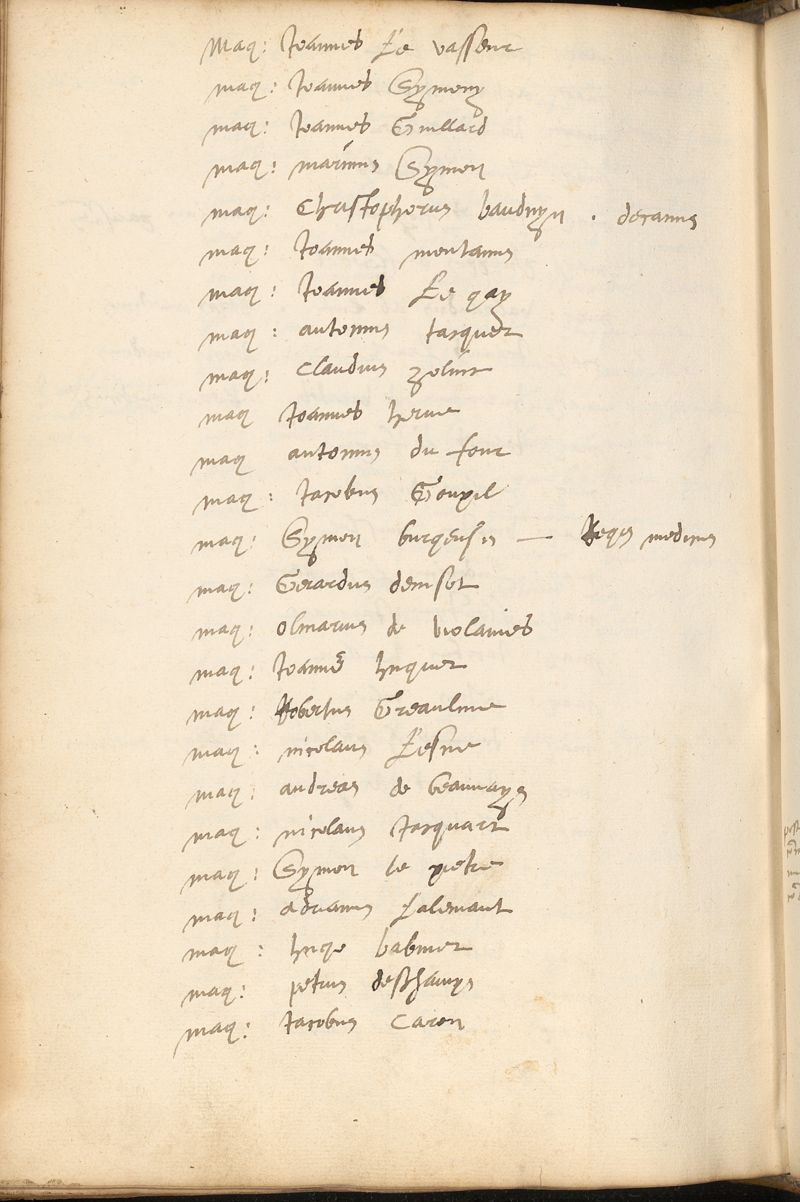 Mag: Ioannes Le vasseur
mag: Ioannes Symony
mag: Ioannes Guillard
mag: marinus Symon
mag: Christophorus bauduyn . decanus
mag: Ioannes montanus
mag: Ioannes Le gay
mag: antonius tasquet
mag: Claudius
mag Ioannes herue
mag antonius du four
mag: Iacobus Goupil
mag: Symon burgensis — Regis medicus
mag: Gerardus deniset
mag: olmarius de violaines
mag: Ioannes huguet
mag: Robertus Greaulme
mag: nicolaus Lesne
mag: andreas de beauvays
mag: nicolaus Iacquart
mag: Symon le pietre
mag: adrianus Lalemant
mag: hugo babinet
mag: petrus deschamps
mag: Iacobus Caron